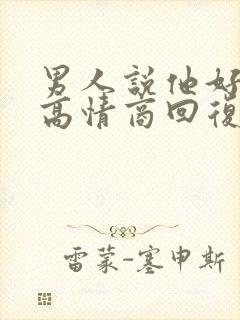 男人說他好
高情商回復
雷蒙-塞申斯